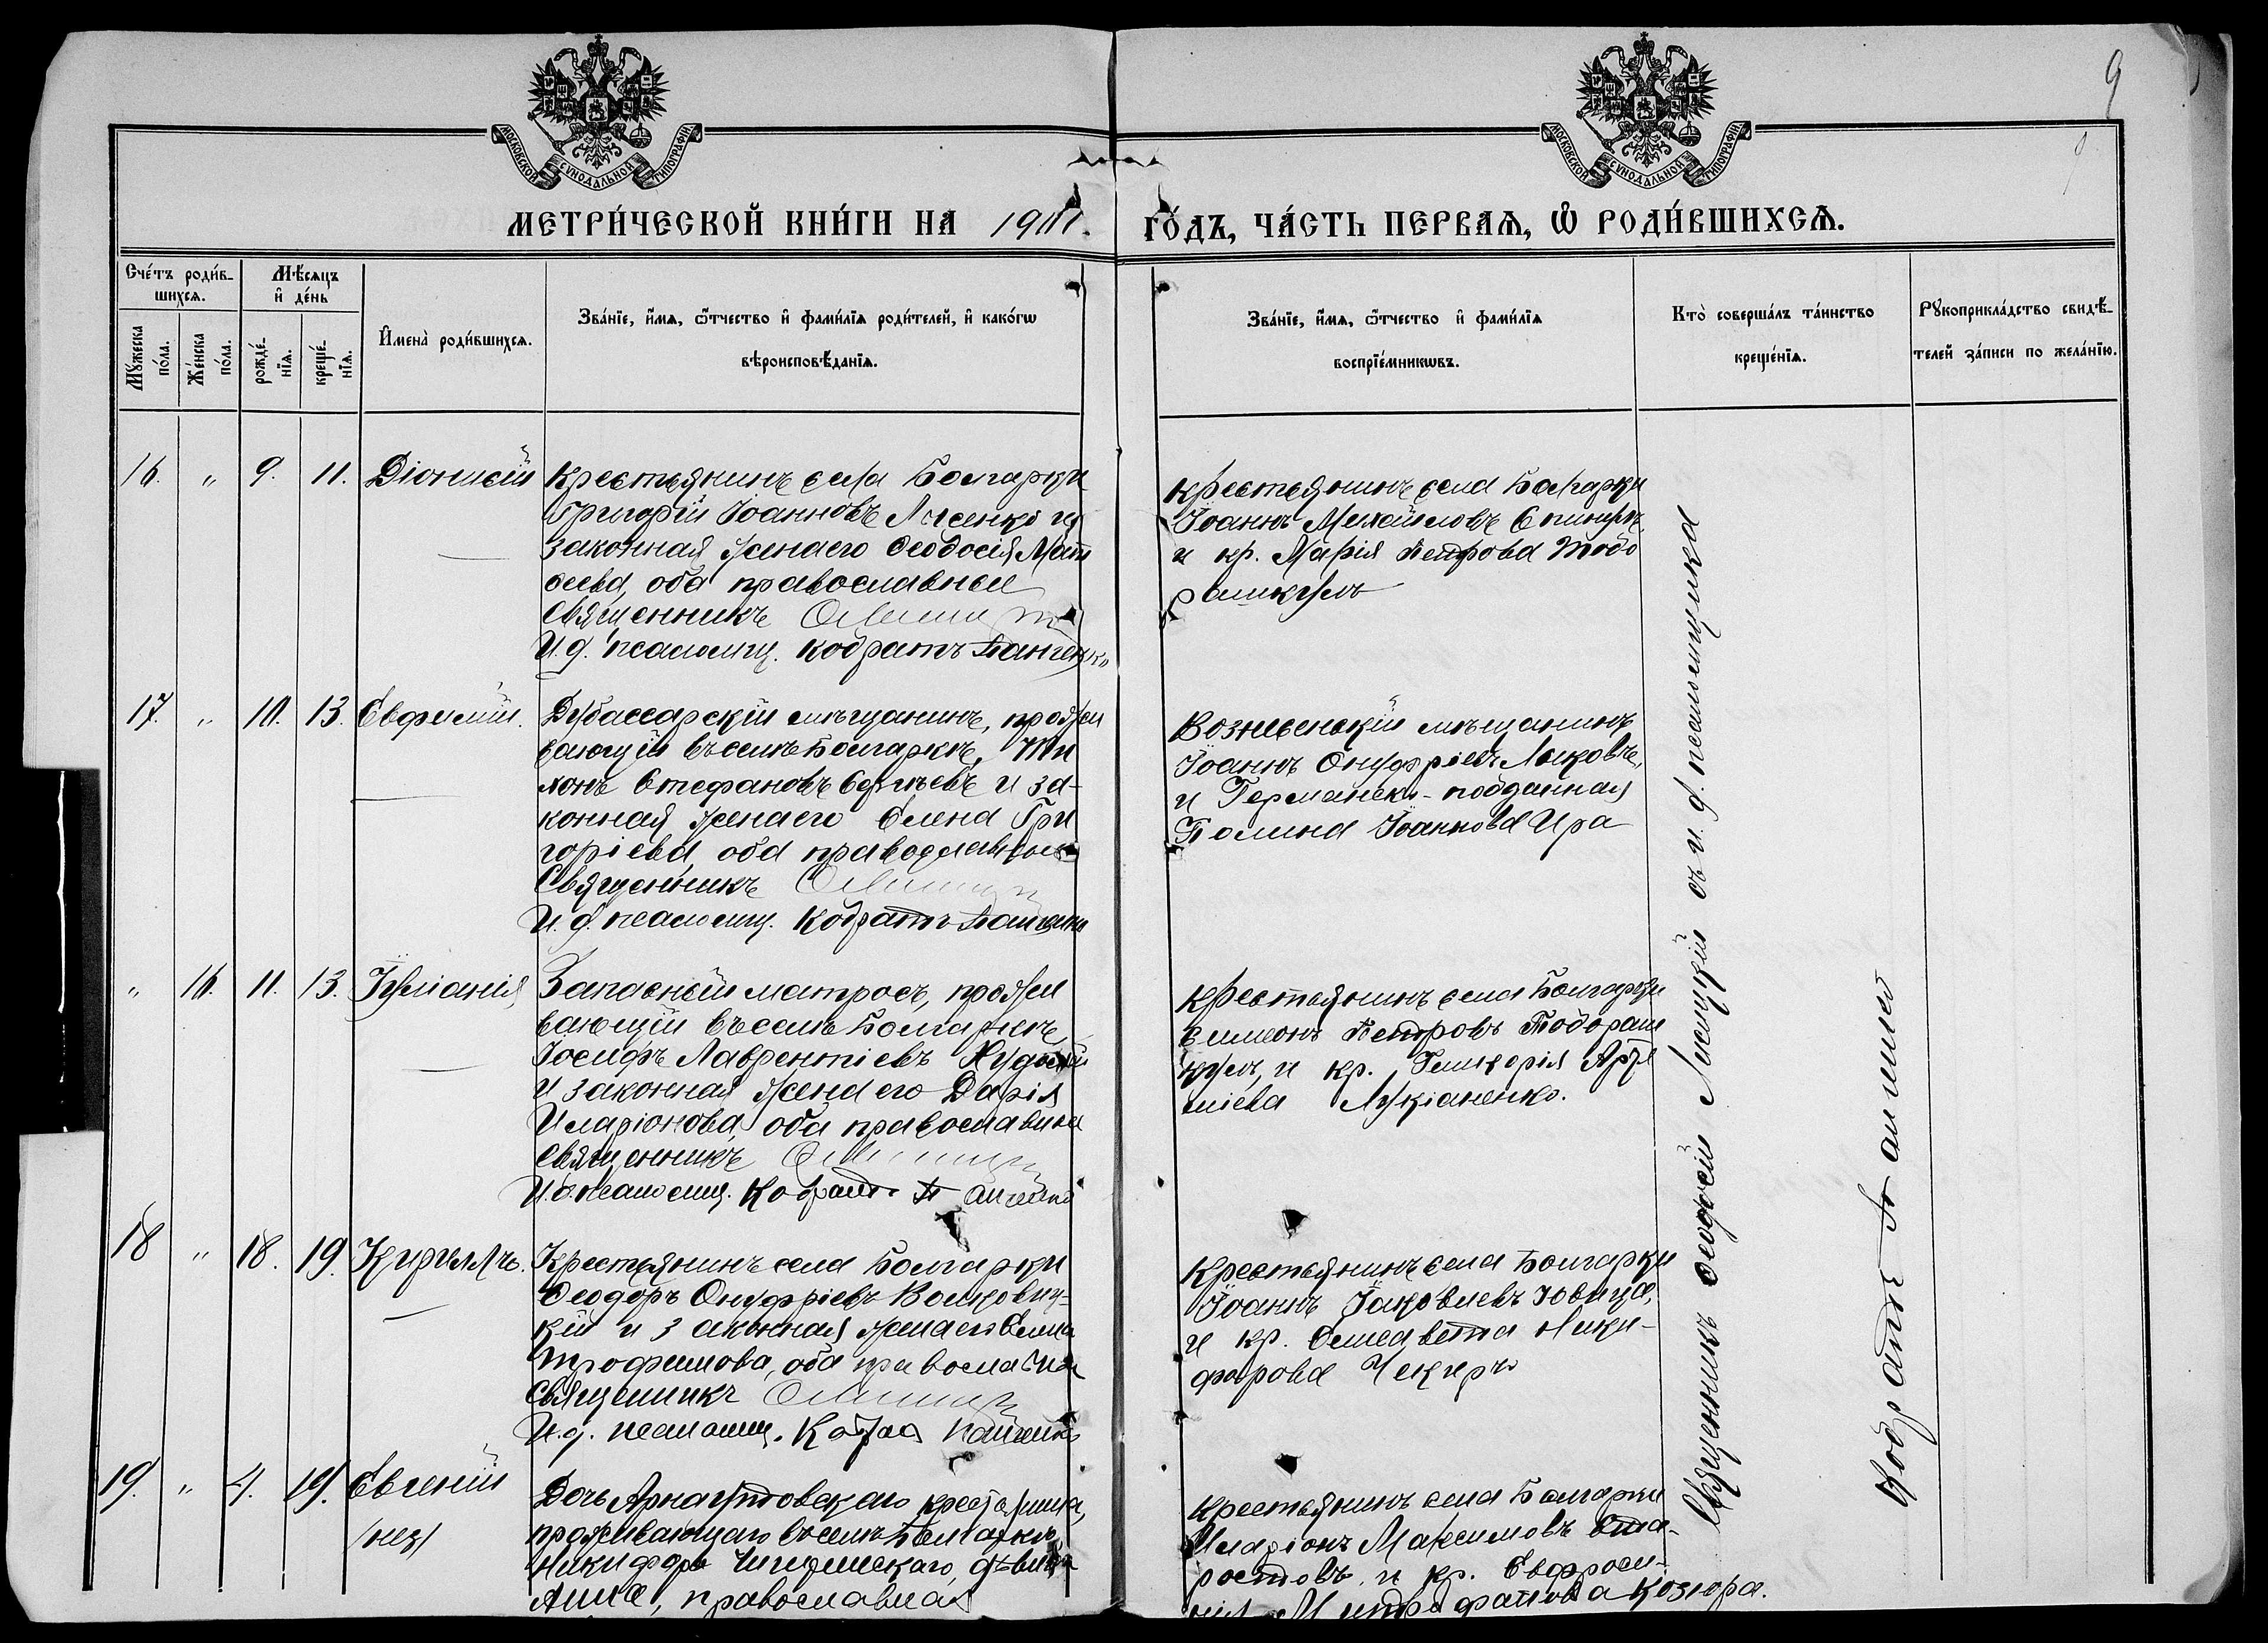 9
МОСКОВСКОЙ СѴНОДАЛЬНОЙ ТИПОГРАФІИ.
МОСКОВСКОЙ СѴНОДАЛЬНОЙ ТИПОГРАФІИ.
МЕТРИ́ЧЕСКОЙ КНИ́ГИ НА 1911. ГО́ДЪ, ЧА́СТЬ ПЕРВАѦ, Ѡ҆ РОДИ́ВШИХСѦ.
Сче́тъ роди́в-
шихсѧ.
Мѣ́сѧцъ
и҆ де́нь
Мꙋ́жеска
по́ла.
Же́нска
по́ла.
рожде́-
нїѧ.
креще́-
нїѧ.
И҆мена̀ роди́вшихсѧ.
Зва́нїе, и҆́мѧ, ѻ҆́тчество и҆ фами́лїѧ роди́телей, и҆ како́гѡ
вѣроисповѣ́данїѧ.
Зва́нїе, и҆́мѧ, ѻ҆́тчество и҆ фами́лїѧ
воспрїе́мникѡвъ.
Кто̀ соверша́лъ та́инство
креще́нїѧ.
Рꙋкоприкла́дство свидѣ́-
телей за́писи по жела́нїю.
16. " 9. 11. Діонисій
Крестьянинъ села Болгарки
Григорій Іоанновъ Лысенко и
законная жена его Ѳеодосія Мат
ѳеева, оба православные
Священникъ
И. д. псаломщ. Кодратъ Панченко
Крестьянинъ села Болгарки
Іоаннъ Михайловъ
и кр. Марія Петрова Тодо
рашкулъ
17. " 10. 13. Евфимій.
Дубассарскій мѣщанинъ, прожи
вающій въ селѣ Болгаркѣ, Ти
хонъ Стефановъ Сергѣевъ и за-
конная жена его Елена Гри
горіева, оба православные
Священникъ
И. д. псаломщ. Кодратъ Панченко
Вознесенскій мѣщанинъ
Іоаннъ Онуфріевъ
и Германско-подданная
Полина Іоаннова
" 16. 11. 13. Іуліанія
Запасный матросъ, прожи
вающій въ селѣ Болгаркѣ
Іосифъ Лаврентіевъ
и законная жена его Дарія
Иларіонова, оба православные
Священникъ
И. д. псаломщ. Кодратъ Панченко
Крестьянинъ села Болгарки
Симеонъ Петровъ Тодораш
кулъ, и кр. Гликерія Арте
міева Лукіаненко.
18 " 18. 19. Кириллъ.
Крестьянинъ села Болгарки
Ѳеодоръ Онуфріевъ Волковиц-
кій и законная жена его Елена
Трофимова, оба православные
Священникъ
И. д. псаломщ. Кодратъ Панченко
Крестьянинъ села Болгарки
Іоаннъ Іаковлевъ Іовица,
и кр. Елисавета Ники-
форова Чекиръ
19. " 4. 19. Евгеній
/нез/
Дочь Арнаутовскаго крестьянина,
проживающаго въ селѣ Болгаркѣ
Никифора дѣвица
Анна, православная
Крестьянинъ села Болгарки
Иларіонъ Максимовъ Ста-
ростовъ, и кр. Евфроси-
нія Митрофанова Козюра.
Священникъ Ѳеодосій Лисицкій съ и. д. псаломщика
Кодратъ Панченко